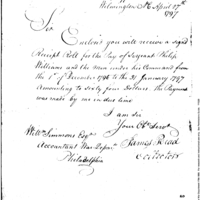 Wilmington NC April 17th
1797
Sir
Enclos'd you will receive a signed
Receipt Roll for the Pay of Serjeant Philip
Williams and the Men under his Command from
the 1st December 1796 to the 31 January 1797
Amounting to sixty four Dollars. The Payment
was made by me in due time
I am Sir
Your Obt Servt
James Read
Collector
Willm Simmons Esqr
Accountant War Depart
Philadelphia